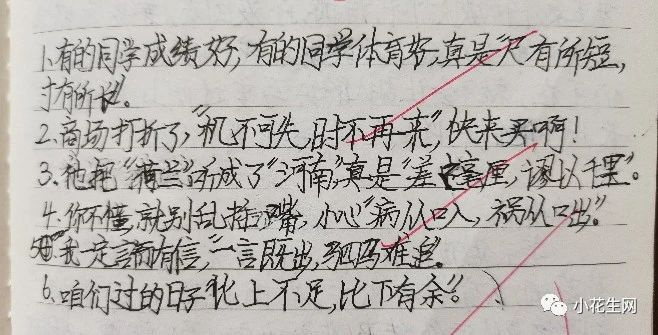 1.有的同学成绩好,有的同学体育好,真是"尺有所短,
寸有所长"。
2.商场打折了,"机不可失,时不再来",快来买啊!
3.他把"荷兰"听成了"河南",真是"差之毫厘,谬以千里"。
4.你不懂,就别乱插嘴,小心"病从口入,祸从口出。"
5.我一定言而有信,"一言既出,驷马难追"。
6.咱们过的日子"比上不足,比下有余"。
小花生网